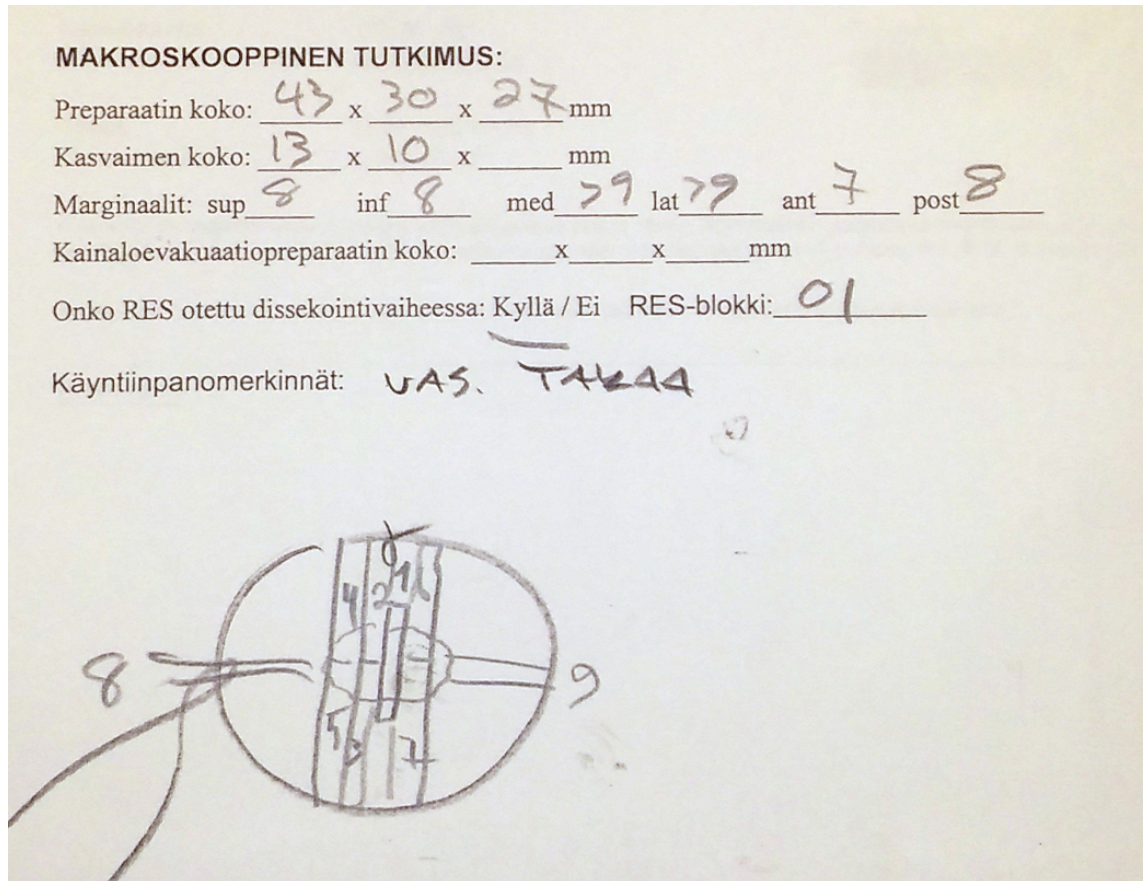 MAKROSKOOPPINEN TUTKIMUS:
Preparaatin koko: 43 x 30 x 27 mm
Kasvaimen koko: 13 x 10 x ______ mm
Marginaalit: sup 8 inf 8 med >9 lat >9 ant 7 post 8
Kainaloevakuaatiopreparaatin koko: ______x______x______mm
Onko RES otettu dissekointivaiheessa: Kyllä / Ei RES-blokki: 01
Käyntiinpanomerkinnät: VAS. TAKAA
4 2 1 6
8 9
5 3 7